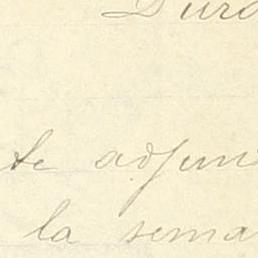 Dura
te adjun
la sema